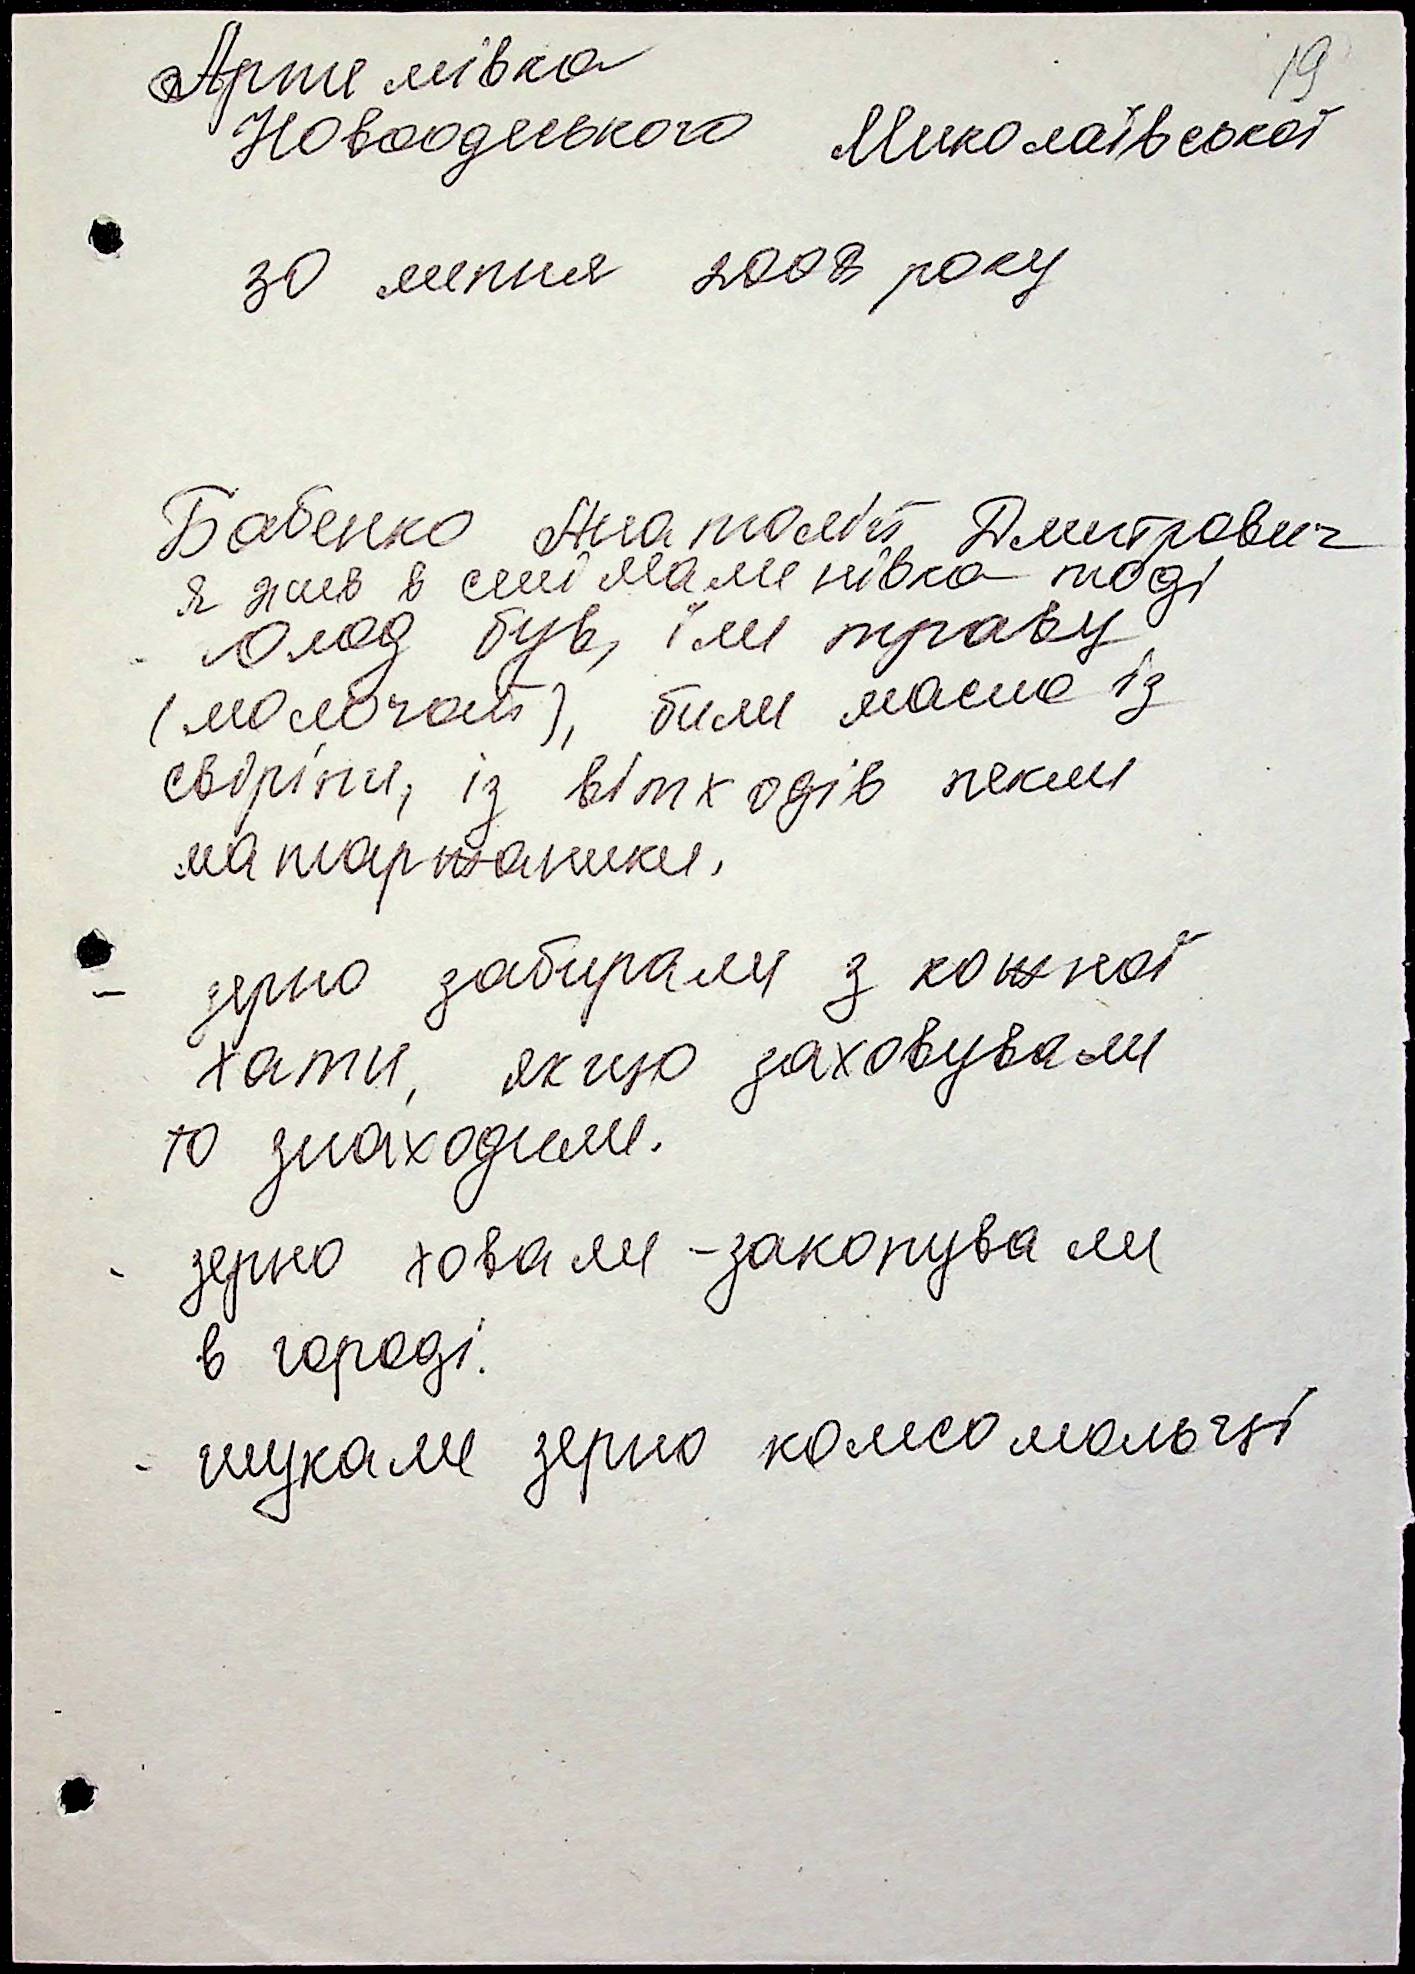 19
Артемівка
Новоодеського Миколаївської
30 липня 2008 року
Бабенко Анатолій Дмитрович
я жив в селі тоді
- голод був, їли траву
(молочай), били масло із
свіріпи, із вітходів пекли
маторжаники.
- зерно забирали з кожної
хати, якщо заховували
то знаходили.
- зерно ховали - закопували
в городі.
- шукали зерно комсомольці